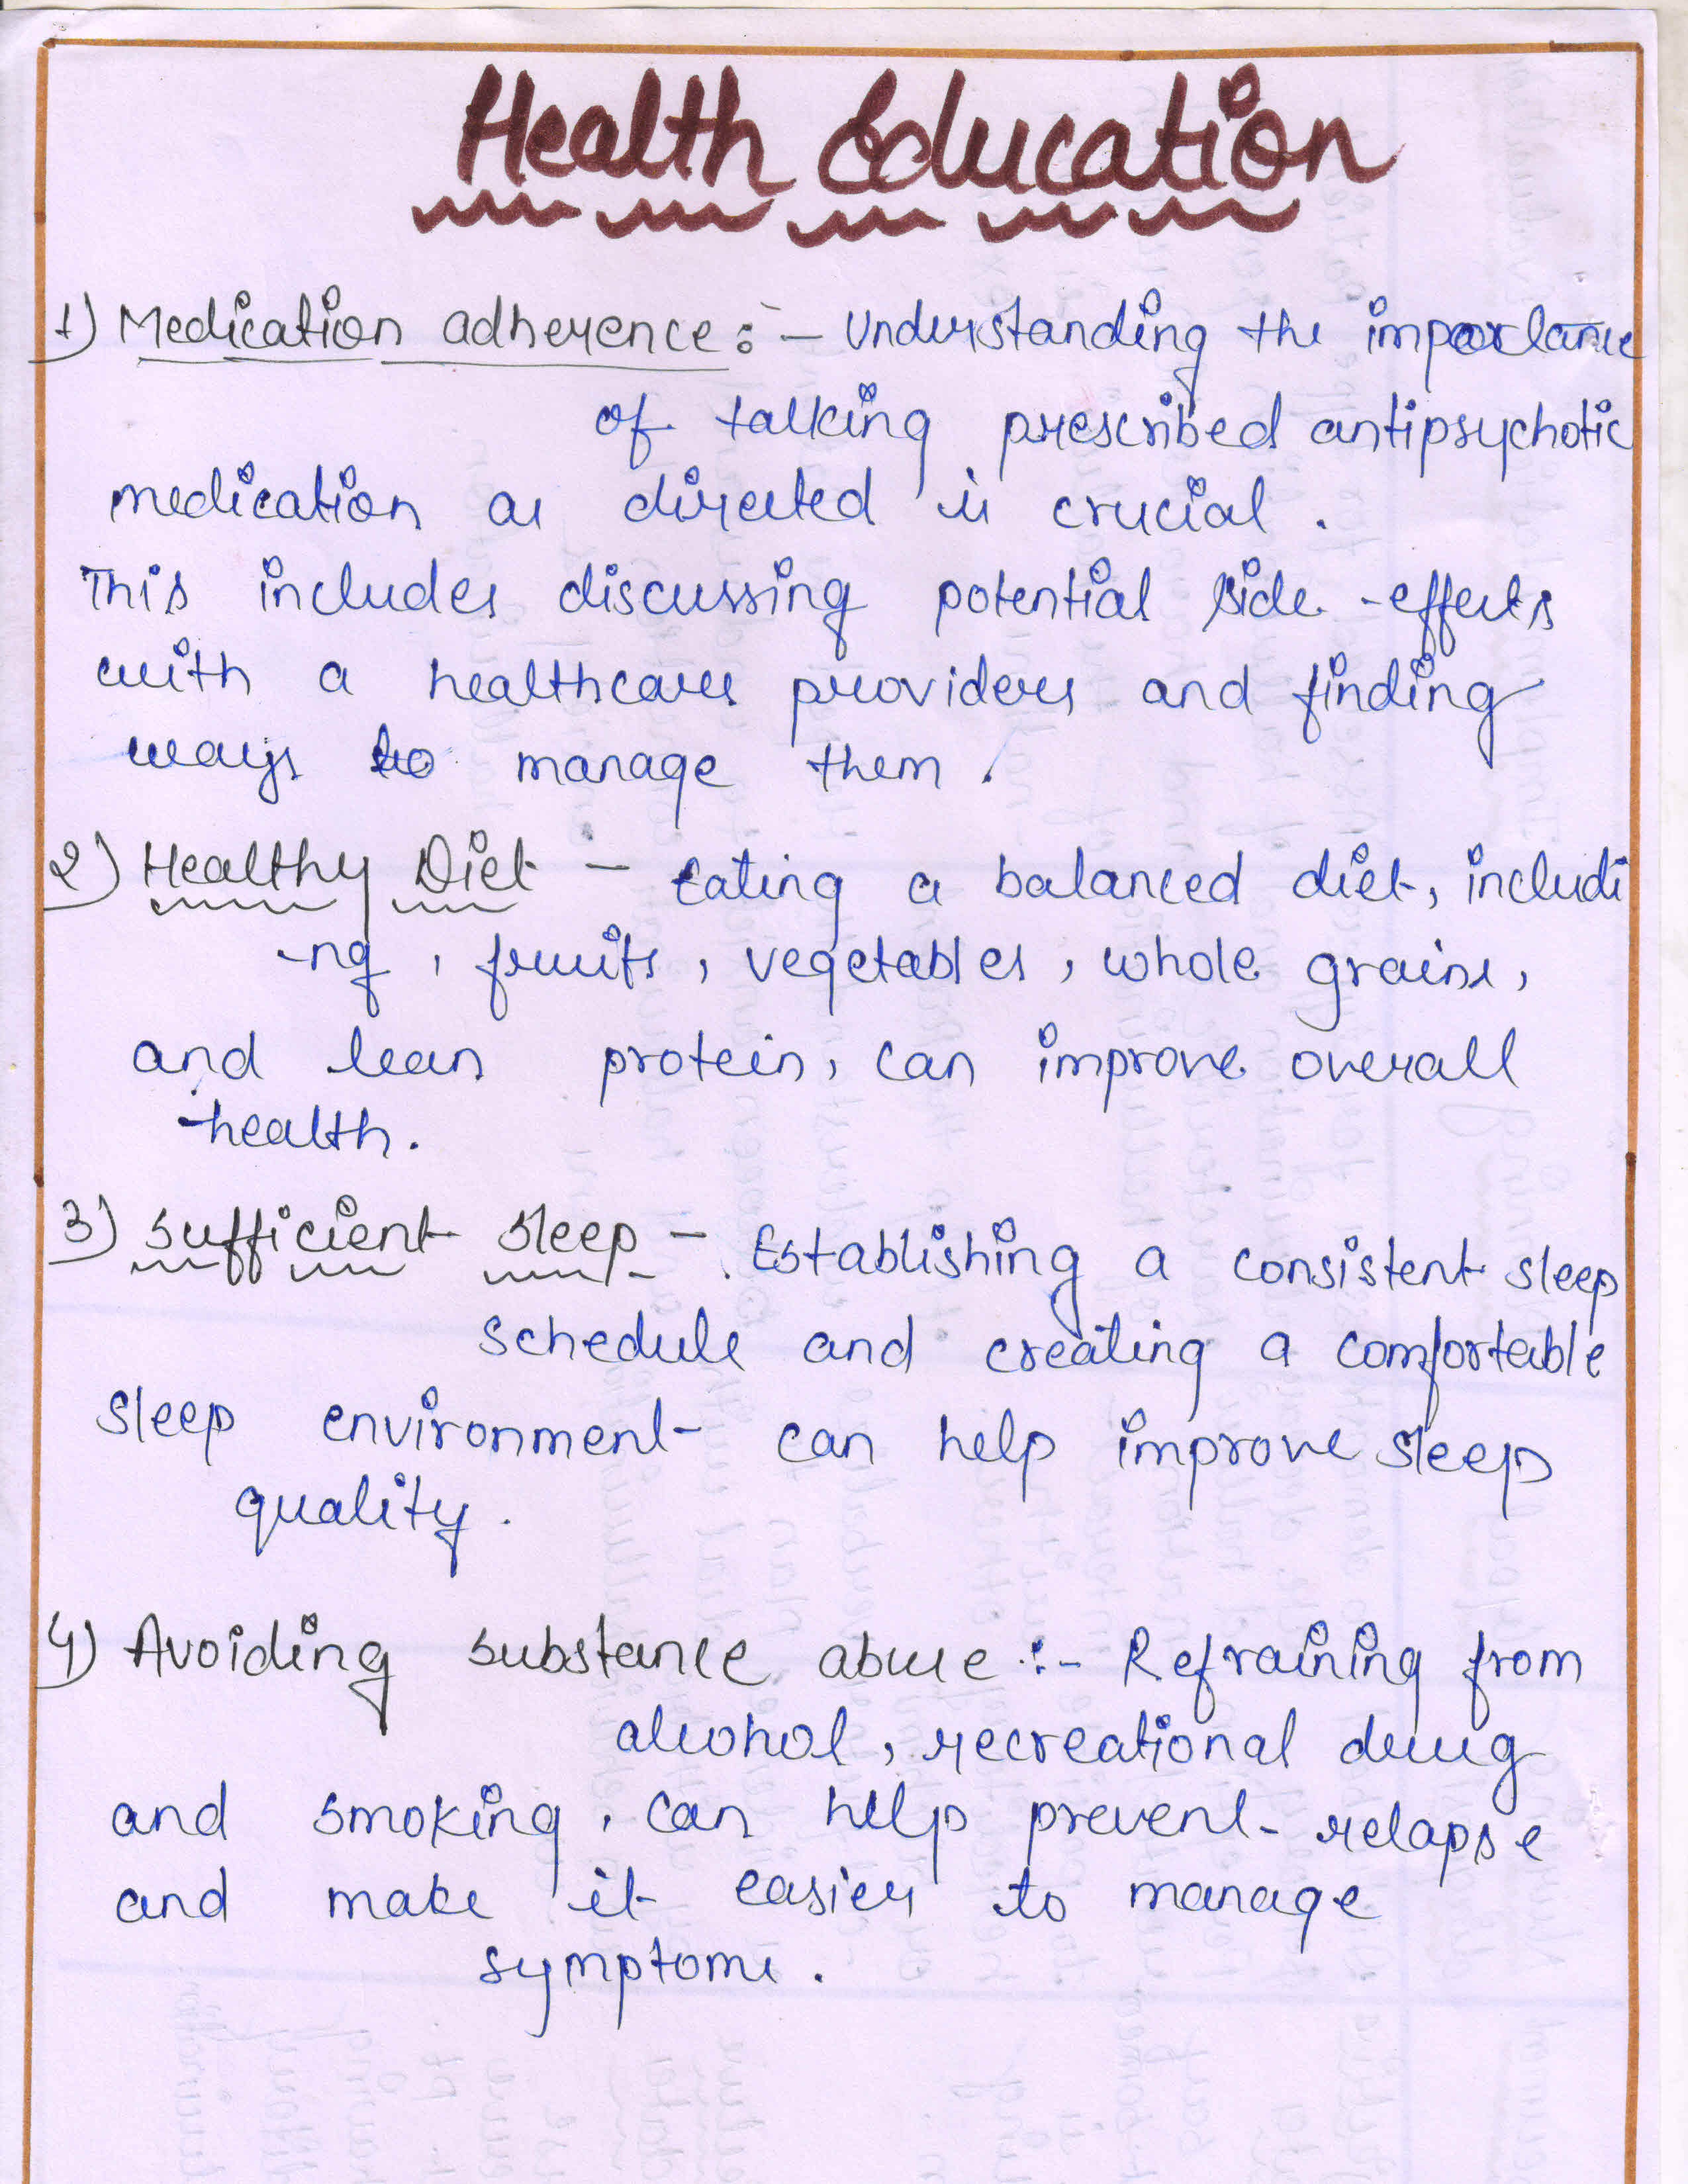 Health Education
1) Medication adherence :- Understanding the importance
of talking prescribed antipsychotic
medication as directed is crucial.
This includes discussing potential side-effects
with a healthcare providers and finding
ways to manage them.
2) Healthy Diet - Eating a balanced diet, includi
-ng, fruits, vegetables, whole grains,
and lean protein, can improve overall
-health.
3) Sufficient sleep - Establishing a consistent sleep
schedule and creating a comfortable
sleep environment can help improve sleep
quality.
4) Avoiding substance abuse :- Refraining from
alcohol, recreational drug
and smoking, can help prevent relapse
and make it easier to manage
symptoms.